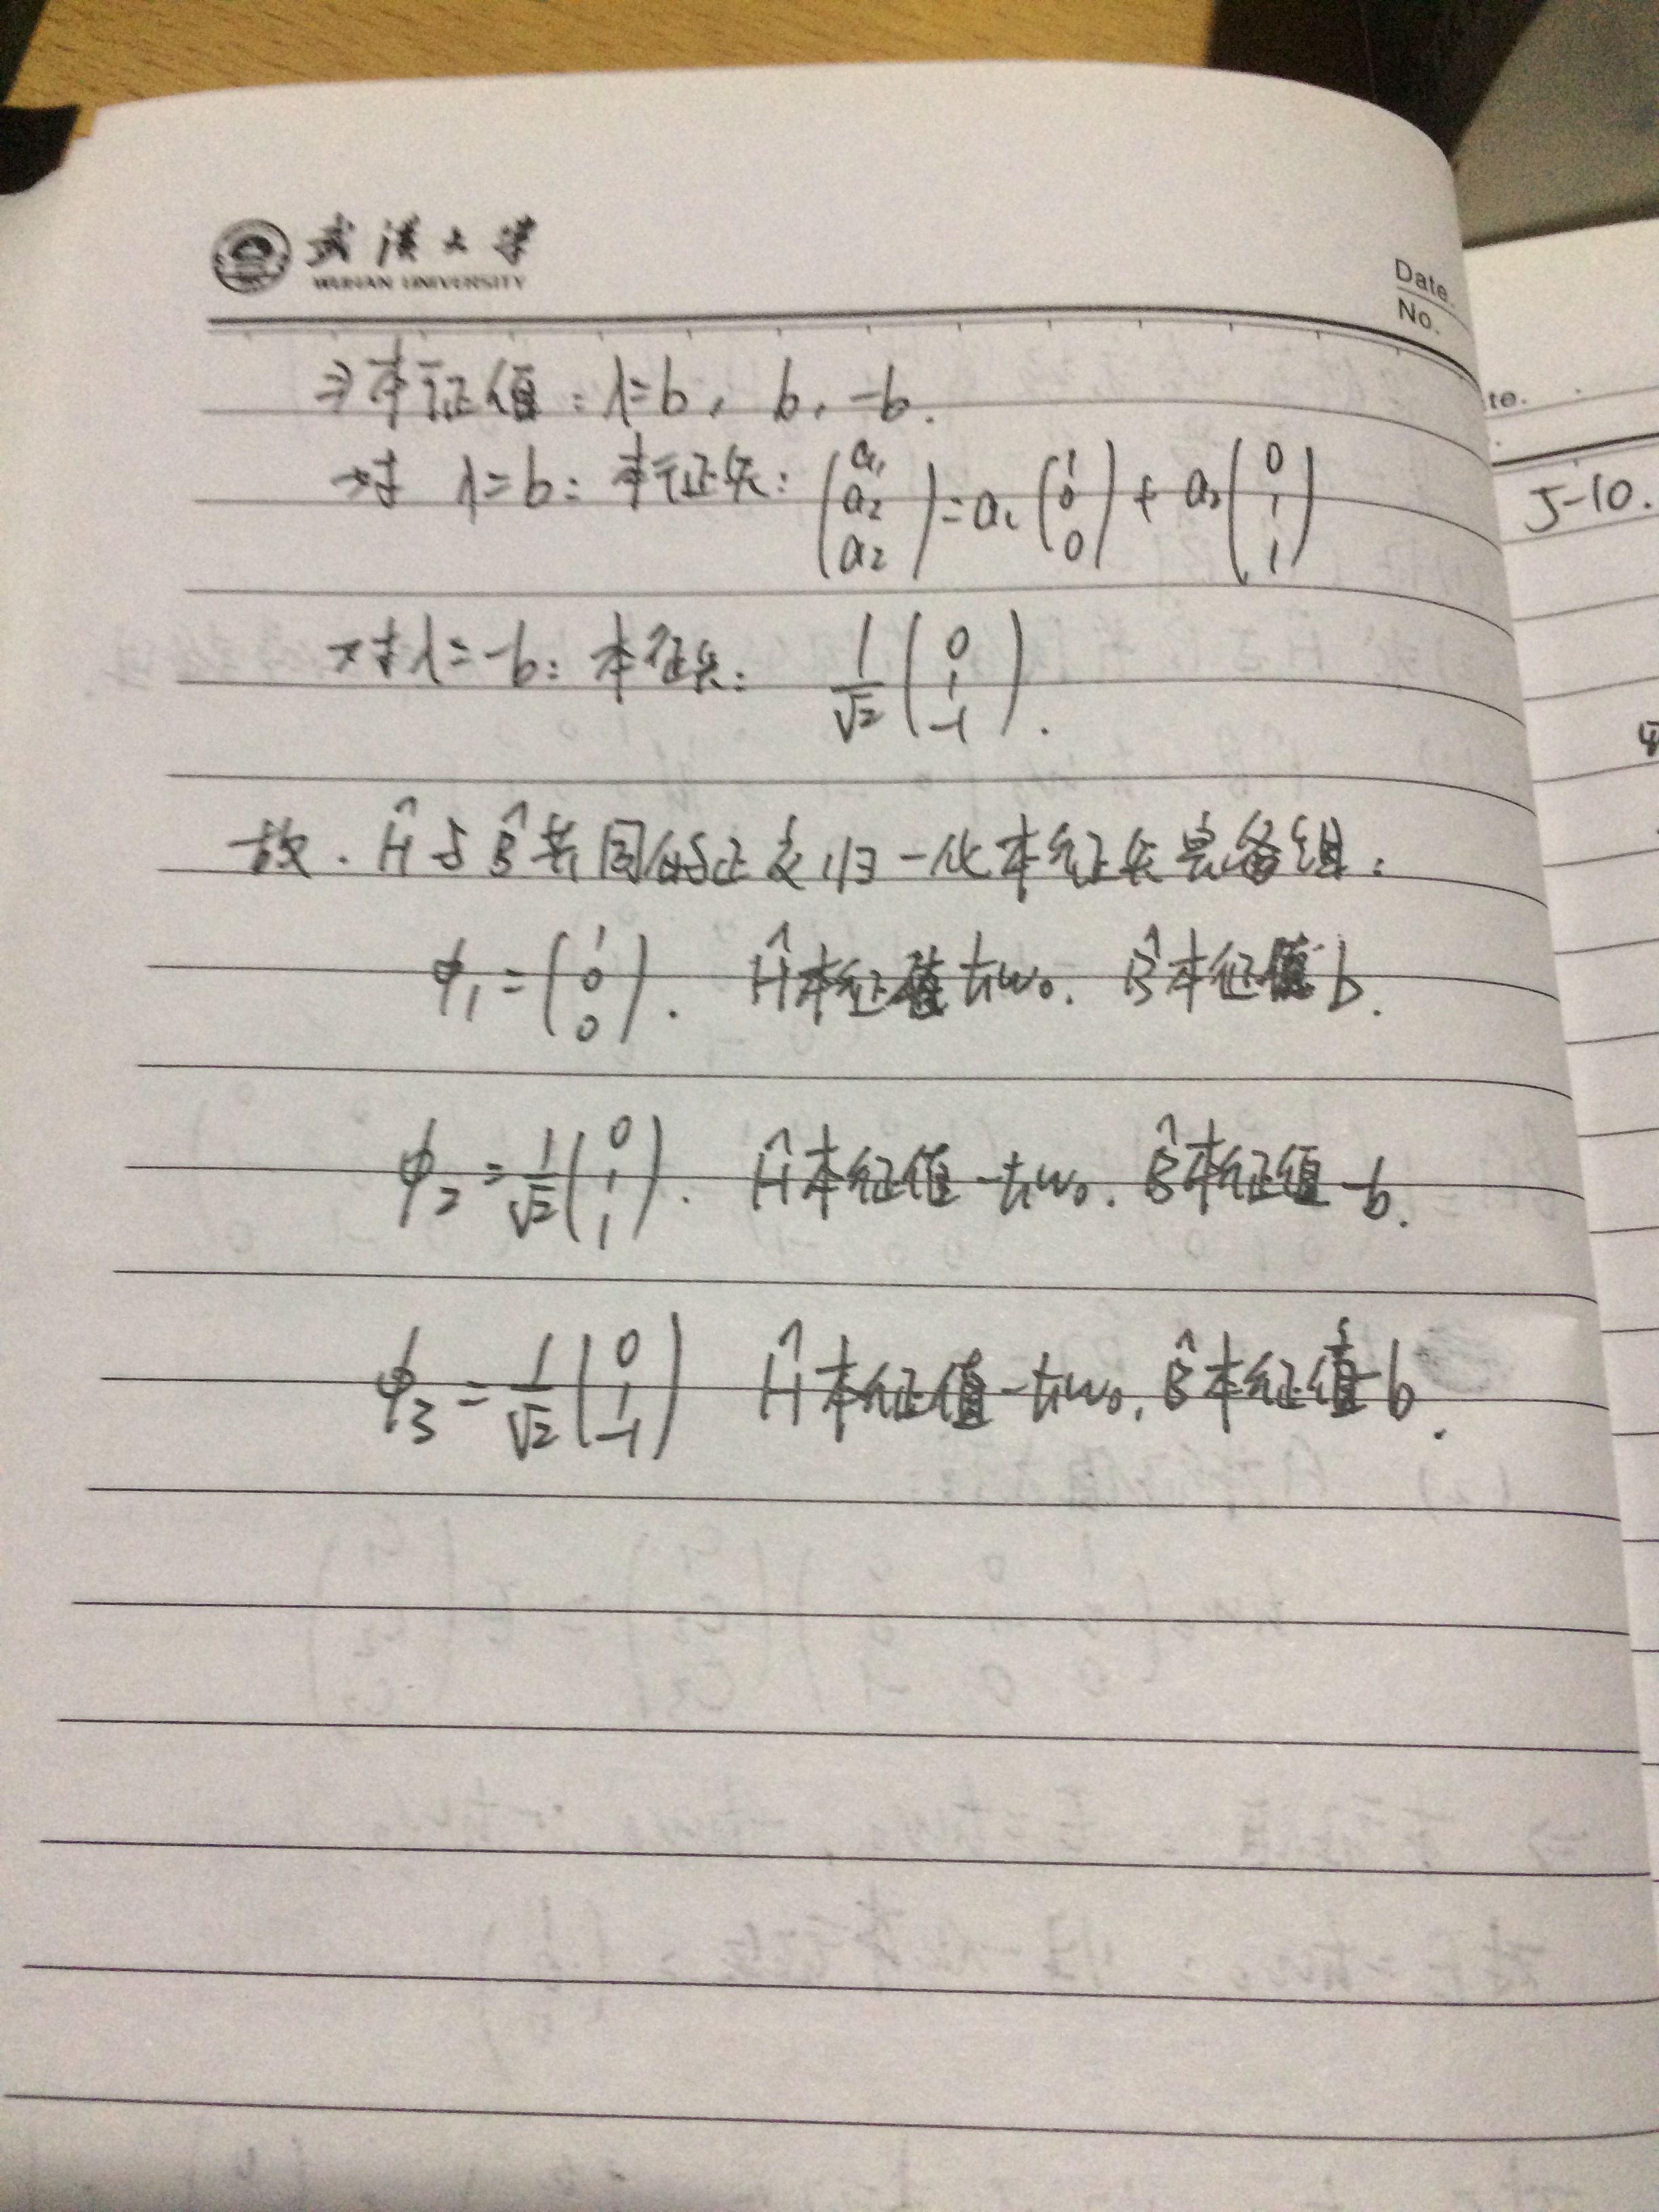 武汉大学
WUHAN UNIVERSITY
Date.
No.
⇒本征值：λ=b, b, -b.
对 λ=b: 本征矢: (a₁ a₂ a₂) = a₁ (1 0 0) + a₂ (0 1 1)
对 λ=-b: 本征矢: 1/√2 (0 1 -1).
故. Ĥ与B̂共同的正交归一化本征矢完备组:
ϕ₁ = (1 0 0). Ĥ本征值ħω₀. B̂本征值b.
ϕ₂ = 1/√2 (0 1 1). Ĥ本征值-ħω₀. B̂本征值-b.
ϕ₃ = 1/√2 (0 1 -1) Ĥ本征值-ħω₀, B̂本征值-b.
te.
5-10.